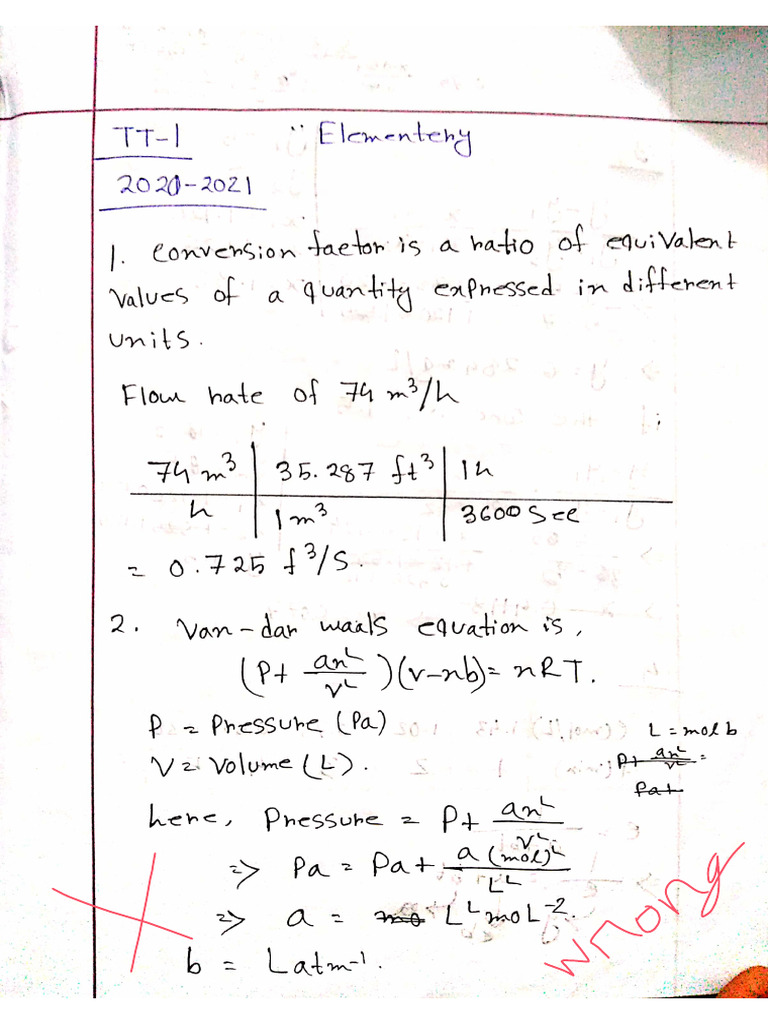 TT-1 Elementery
2020-2021
1. Conversion factor is a ratio of equivalent
values of a quantity expressed in different
units.
Flow rate of 74 m³/h
74 m³ | 35.287 ft³ | 1h
h | 1m³ | 3600 Sec
= 0.725 f³/S.
2. Van-dar waals equation is,
(P+ an²/v²)(v-nb)= nRT.
P = Pressure (Pa)
V = Volume (L).
L = mol b
P+ an²/v² =
Pa+
here, Pressure = P+ an²/v²
=> Pa = Pa+ a(mol)²/L²
=> a = mo L²moL⁻².
b = Latm⁻¹.
wrong